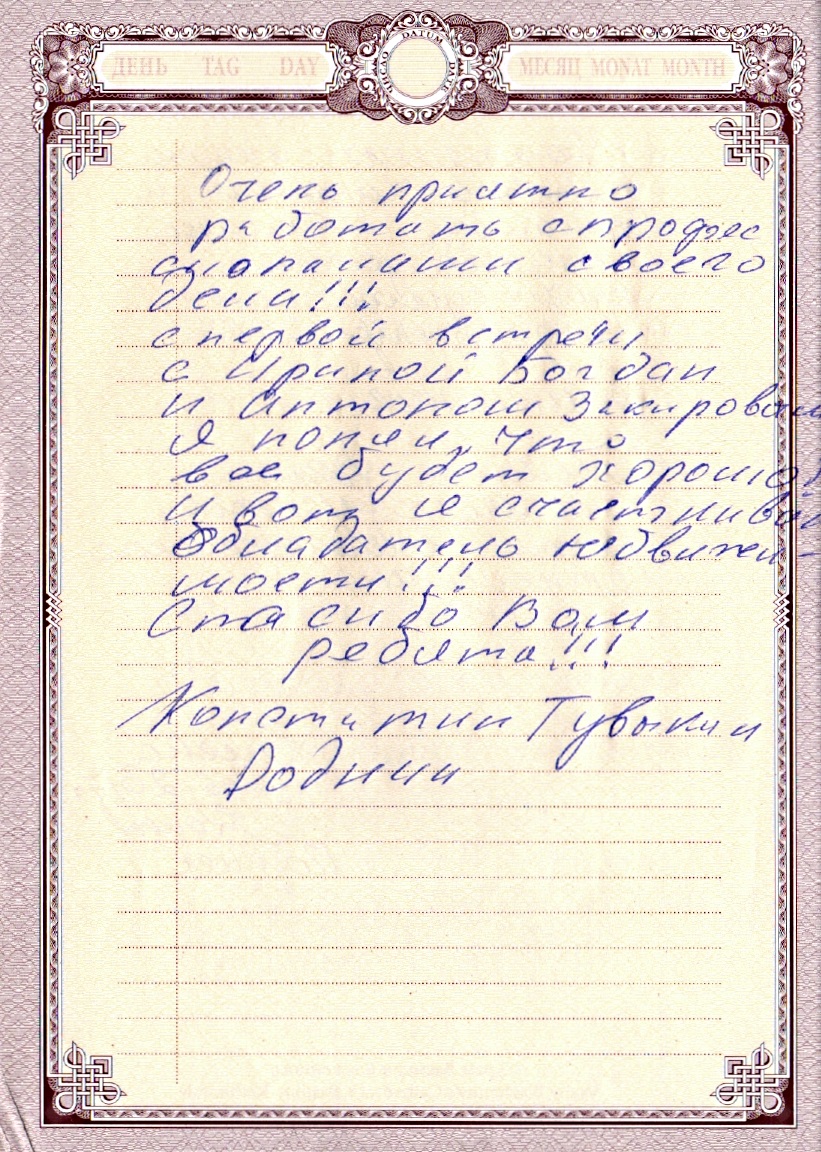 ДЕНЬ TAG DAY
ЧИСЛО DATUM DATE
МЕСЯЦ MONAT MONTH
Очень приятно
работать с профес
сионалами своего
дела!!!
с первой встречи
с Ириной Богдан
и Антоном Закировым
я понял, что
все будет хорошо!
и вот я счастливый
обладатель недвижи-
мости!!!
Спасибо Вам
ребята!!!
Константин Тувыкин